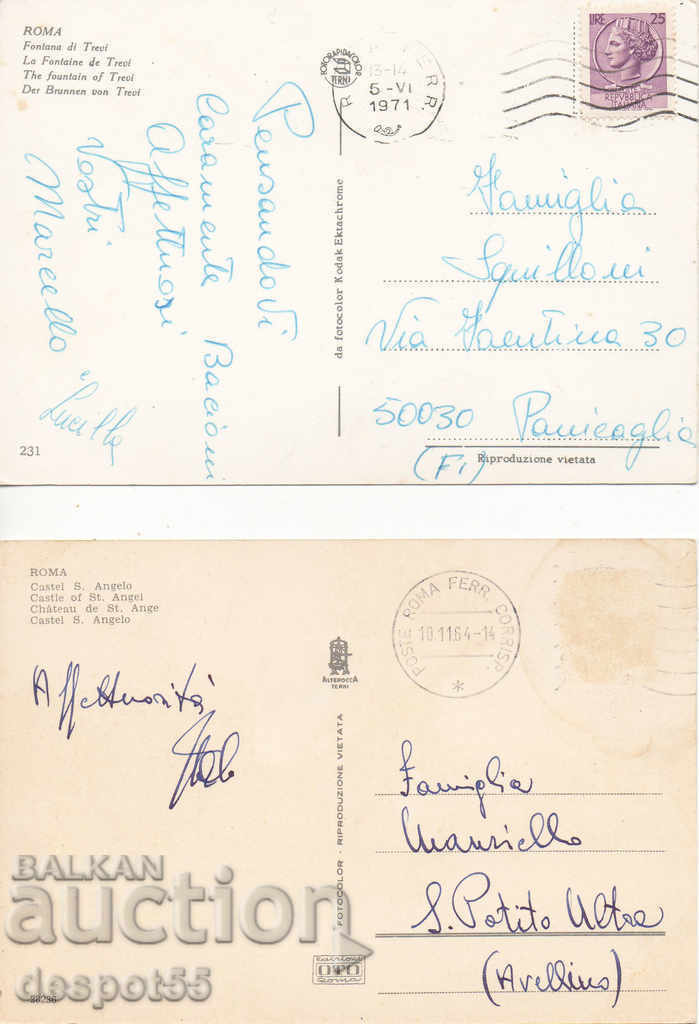 ROMA
Fontana di Trevi
La Fontaine de Trevi
The fountain of Trevi
Der Brunnen von Trevi
Pensandovi
Caramente Bacioni
Affettuosi
Vostri
Marcello
Lucilla
231
FOTORAPIDACOLOR
TERNI
da fotocolor Kodak Ektachrome
13-14
5-VI
1971
LIRE 25
REPVBBLICA
ITALIANA
Famiglia
Squilloni
Via Faentina 30
50030 Panicaglia
(Fi)
Riproduzione vietata
ROMA
Castel S. Angelo
Castle of St. Angel
Château de St. Ange
Castel S. Angelo
Affettuosità
ALTEROCCA
TERNI
FOTOCOLOR - RIPRODUZIONE VIETATA
POSTE ROMA FERR. CORRISP.
10.11.64-14
Famiglia
S. Potito Ultra
(Avellino)
BALKAN
auction
despot55